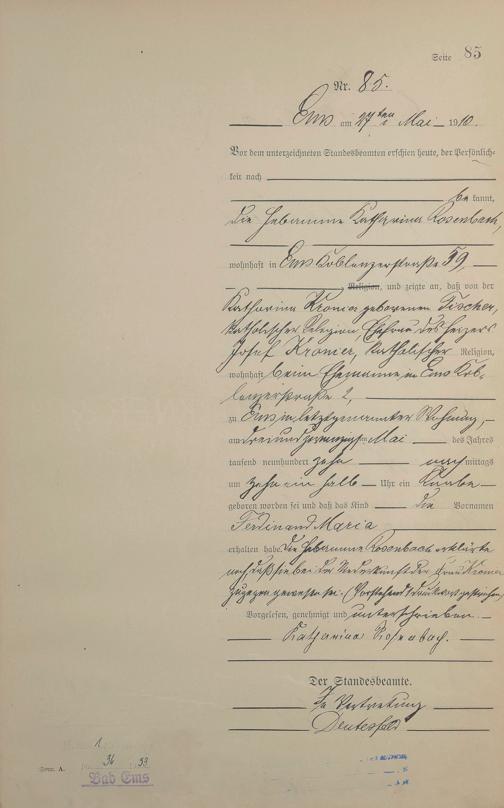 Seite 85
Nr. 85.
Ems am 27ten Mai 1910.
Vor dem unterzeichneten Standesbeamten erschien heute, der Persönlich-
keit nach
bekannt,
die Hebamme Katharina Rosenbach,
wohnhaft in Ems Koblenzerstraße 59,
Religion, und zeigte an, daß von der
Katharina Kronier geborenen Fischer,
katholischer Religion, Ehefrau des
Josef Kronier, katholischer Religion,
wohnhaft beim Ehemanne in Ems Kob-
lenzerstraße 2,
zu Ems in letztgenannter Wohnung,
am dreiundzwanzigsten Mai des Jahres
tausend neunhundert zehn nachmittags
um zehn ein halb Uhr ein Knabe
geboren worden sei und daß das Kind die Vornamen
Ferdinand Maria
erhalten habe. Die Hebamme Rosenbach erklärte
noch, daß sie bei der Niederkunft der Frau
zugegen gewesen sei. (Vorstehend 1 Druckwort gestrichen)
Vorgelesen, genehmigt und unterschrieben
Katharina Rosenbach.
Der Standesbeamte.
In Vertretung
Form. A.
1
36 53
Bad Ems